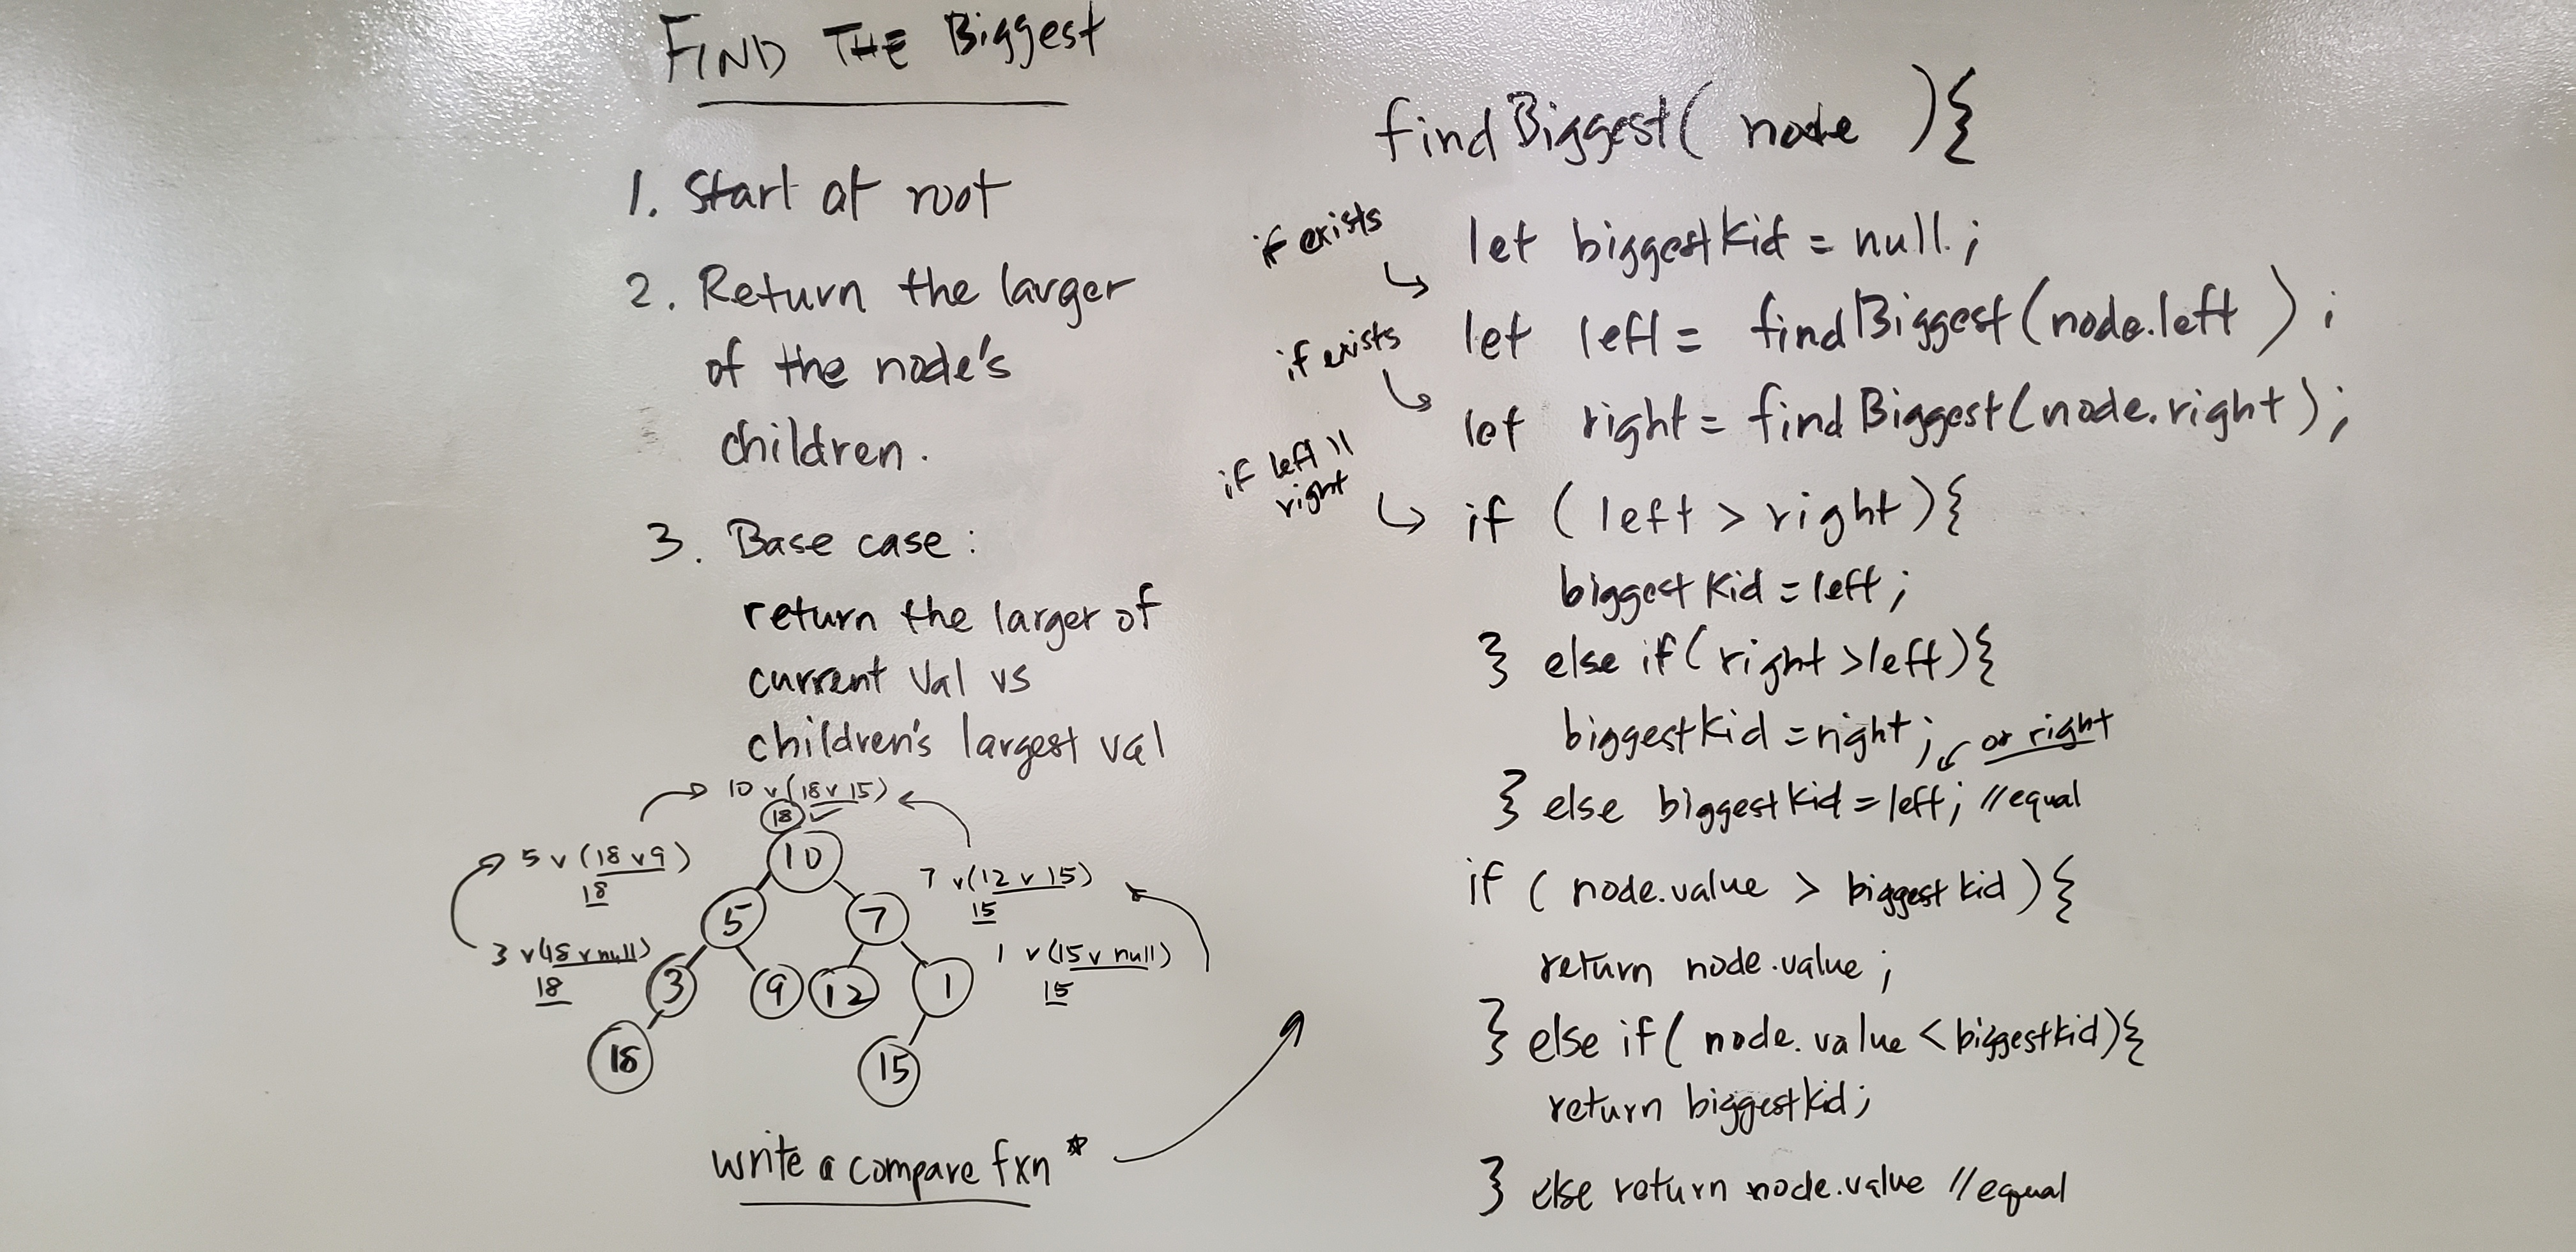 FIND THE Biggest
1. Start at root
2. Return the larger
of the node's
children.
3. Base case:
return the larger of
current val vs
children's largest val
10 v (18 v 15)
18
5 v (18 v 9)
18
7 v (12 v 15)
15
3 v (18 v null)
18
1 v (15 v null)
15
10
5
7
3
9
12
1
18
15
write a compare fxn *
findBiggest( node ){
if exists
let biggestKid = null;
let left = findBiggest(node.left );
if exists
let right = findBiggest(node.right);
if left ||
right
if ( left > right ){
biggestKid = left;
} else if( right > left){
biggestKid = right;
or right
} else biggestKid = left; //equal
if ( node.value > biggestKid ){
return node.value;
} else if( node.value < biggestkid){
return biggestKid;
} else return node.value //equal